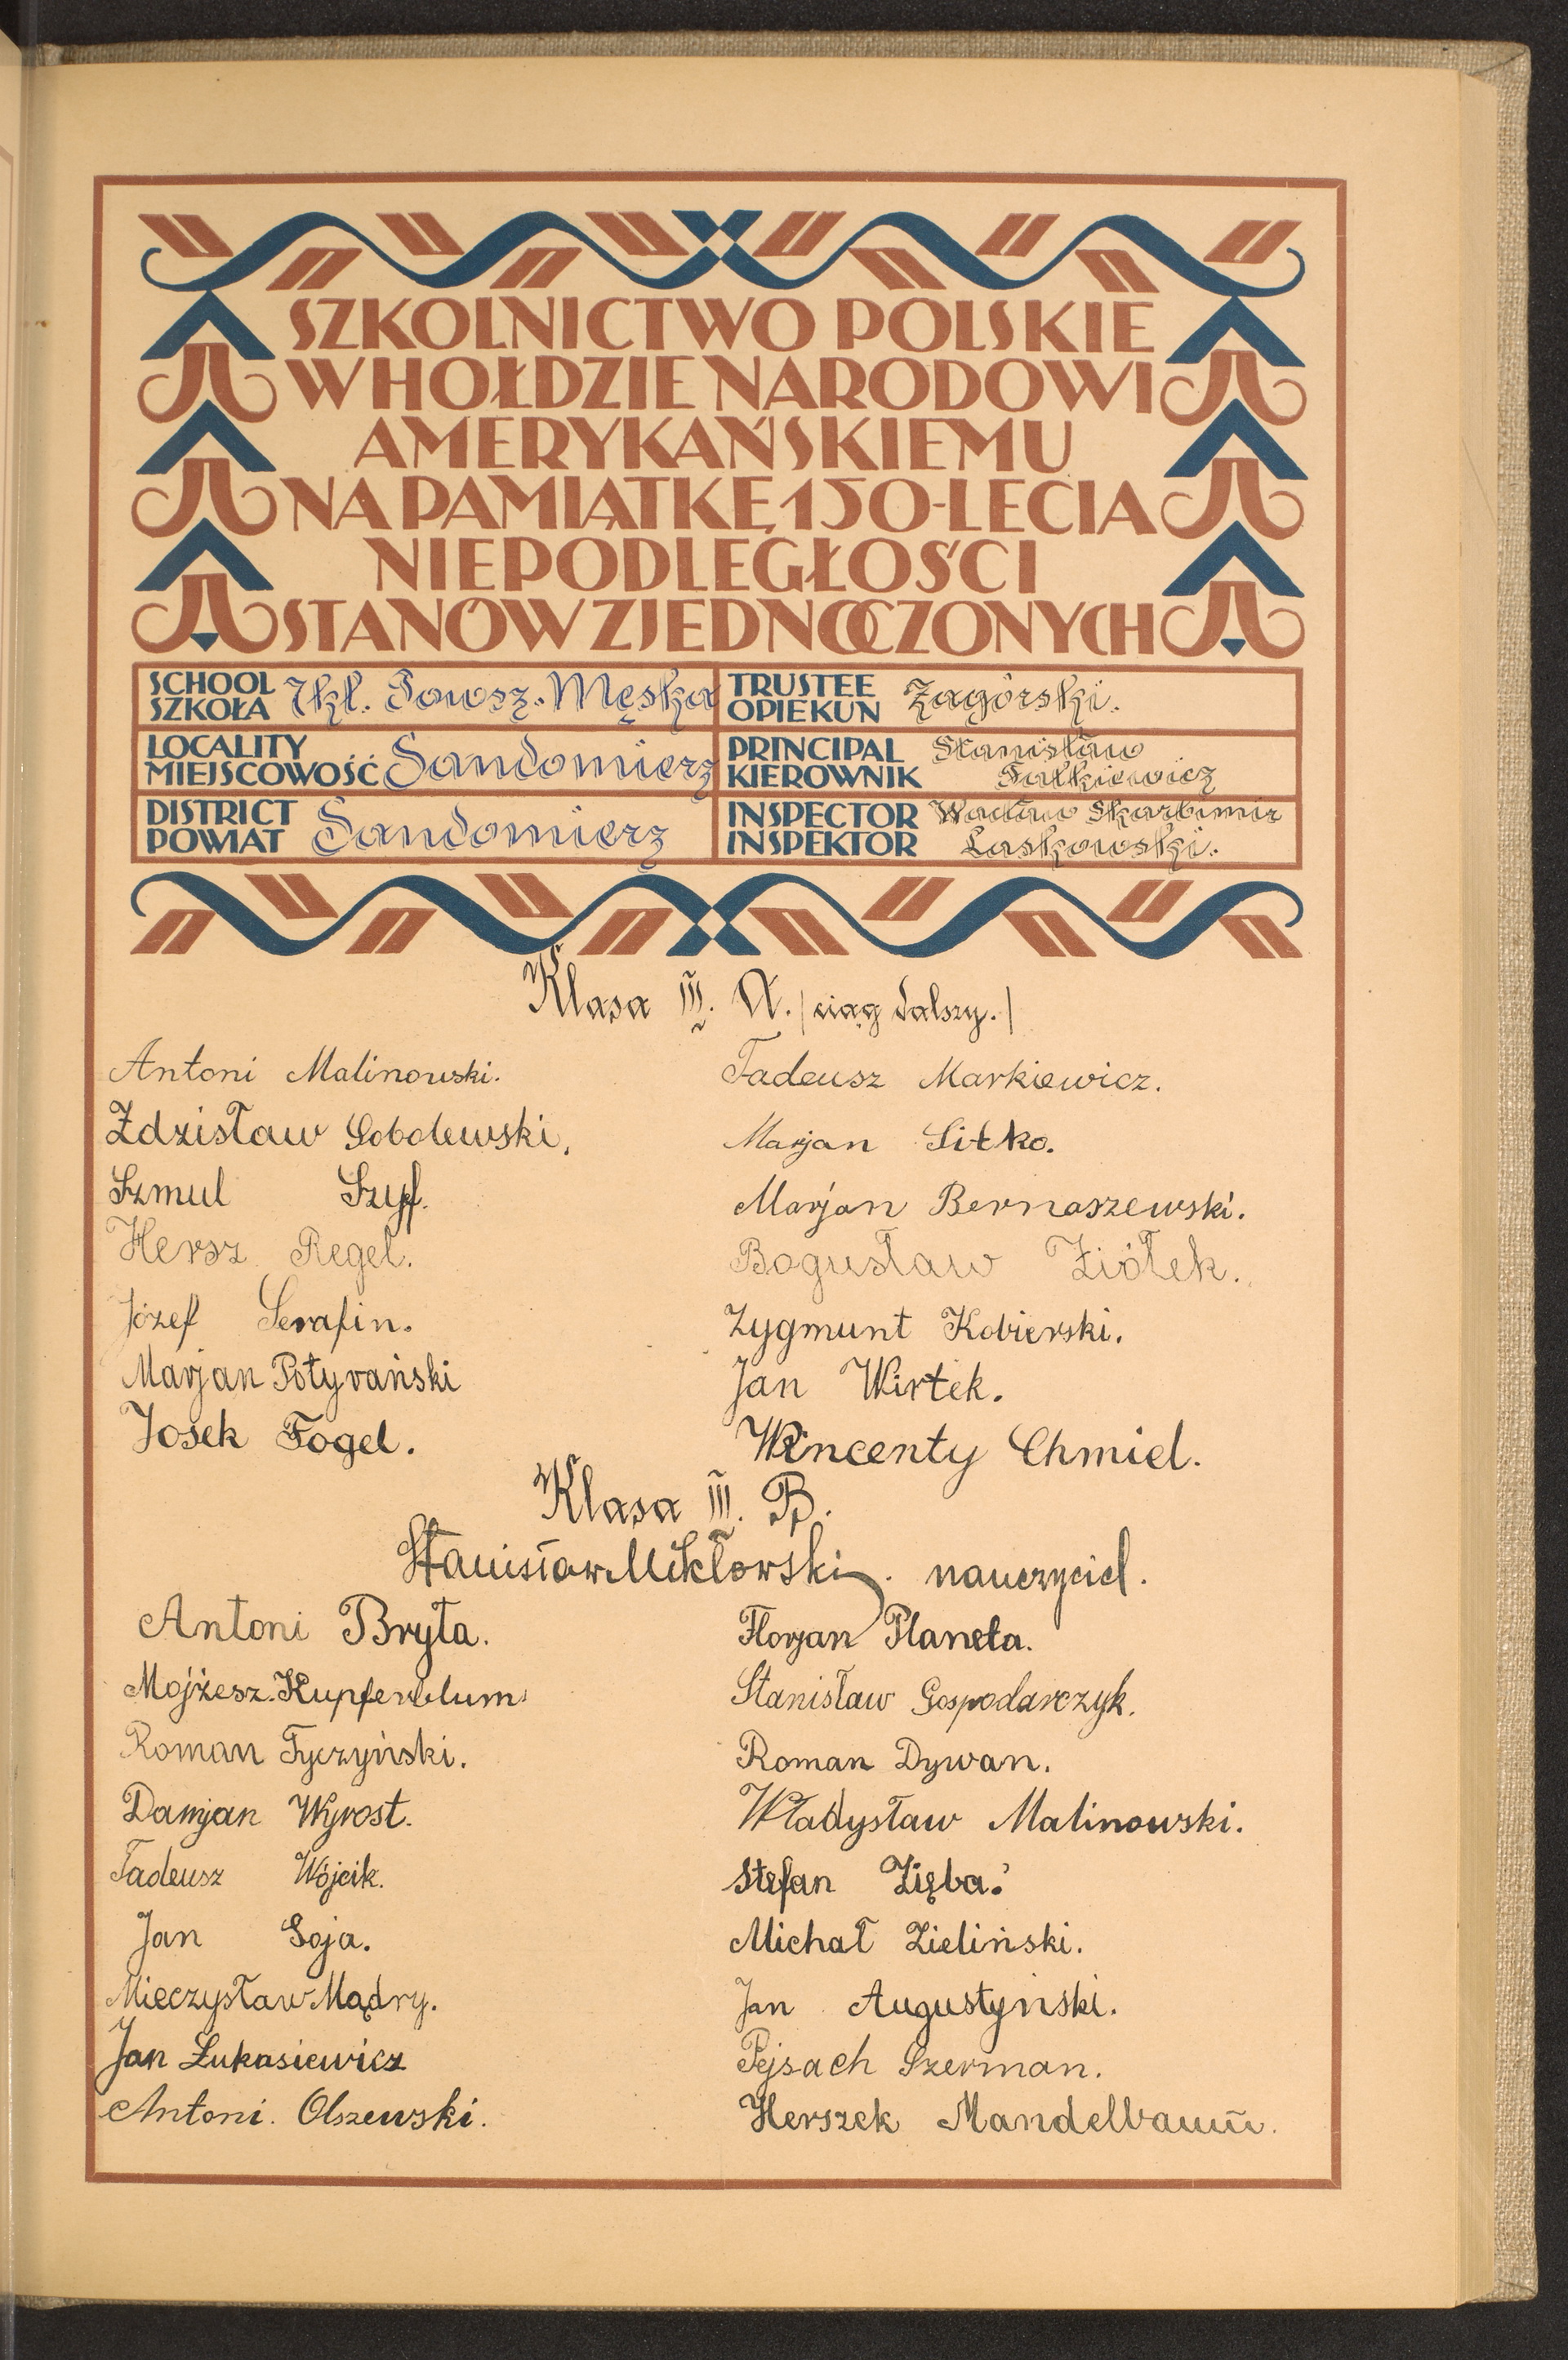 SZKOLNICTWO POLSKIE
W HOŁDZIE NARODOWI
AMERYKAŃSKIEMU
NA PAMIĄTKĘ 150-LECIA
NIEPODLEGŁOŚCI
STANÓW ZJEDNOCZONYCH
SCHOOL
SZKOŁA 7kl. Powsz. Męska
TRUSTEE
OPIEKUN Zagórski.
LOCALITY
MIEJSCOWOŚĆ Sandomierz
PRINCIPAL Stanisław
KIEROWNIK Fałkiewicz
DISTRICT
POWIAT Sandomierz
INSPECTOR Wacław Skarbimir
INSPEKTOR Laskowski.
Klasa III. A. /ciąg dalszy./
Antoni Malinowski.
Zdzisław Sobolewski.
Szmul Szyf.
Hersz Regel.
Józef Serafin.
Marjan Potyrański
Josek Fogel.
Tadeusz Markiewicz.
Marjan Sitko.
Marjan Bernaszewski.
Bogusław Ziółek.
Zygmunt Kobierski.
Jan Wirtek.
Wincenty Chmiel.
Klasa III. B.
Stanisław Mikłowski. nauczyciel.
Antoni Bryła.
Mojżesz. Kupferblum
Roman Tyczyński.
Damjan Wyrost.
Tadeusz Wójcik.
Jan Soja.
Mieczysław Mądry.
Jan Łukasiewicz
Antoni. Olszewski.
Florjan Planeta.
Stanisław Gospodarczyk.
Roman Dywan.
Władysław Malinowski.
Stefan Zięba.
Michał Zieliński.
Jan Augustyński.
Pejsach Szerman.
Herszek Mandelbaum.